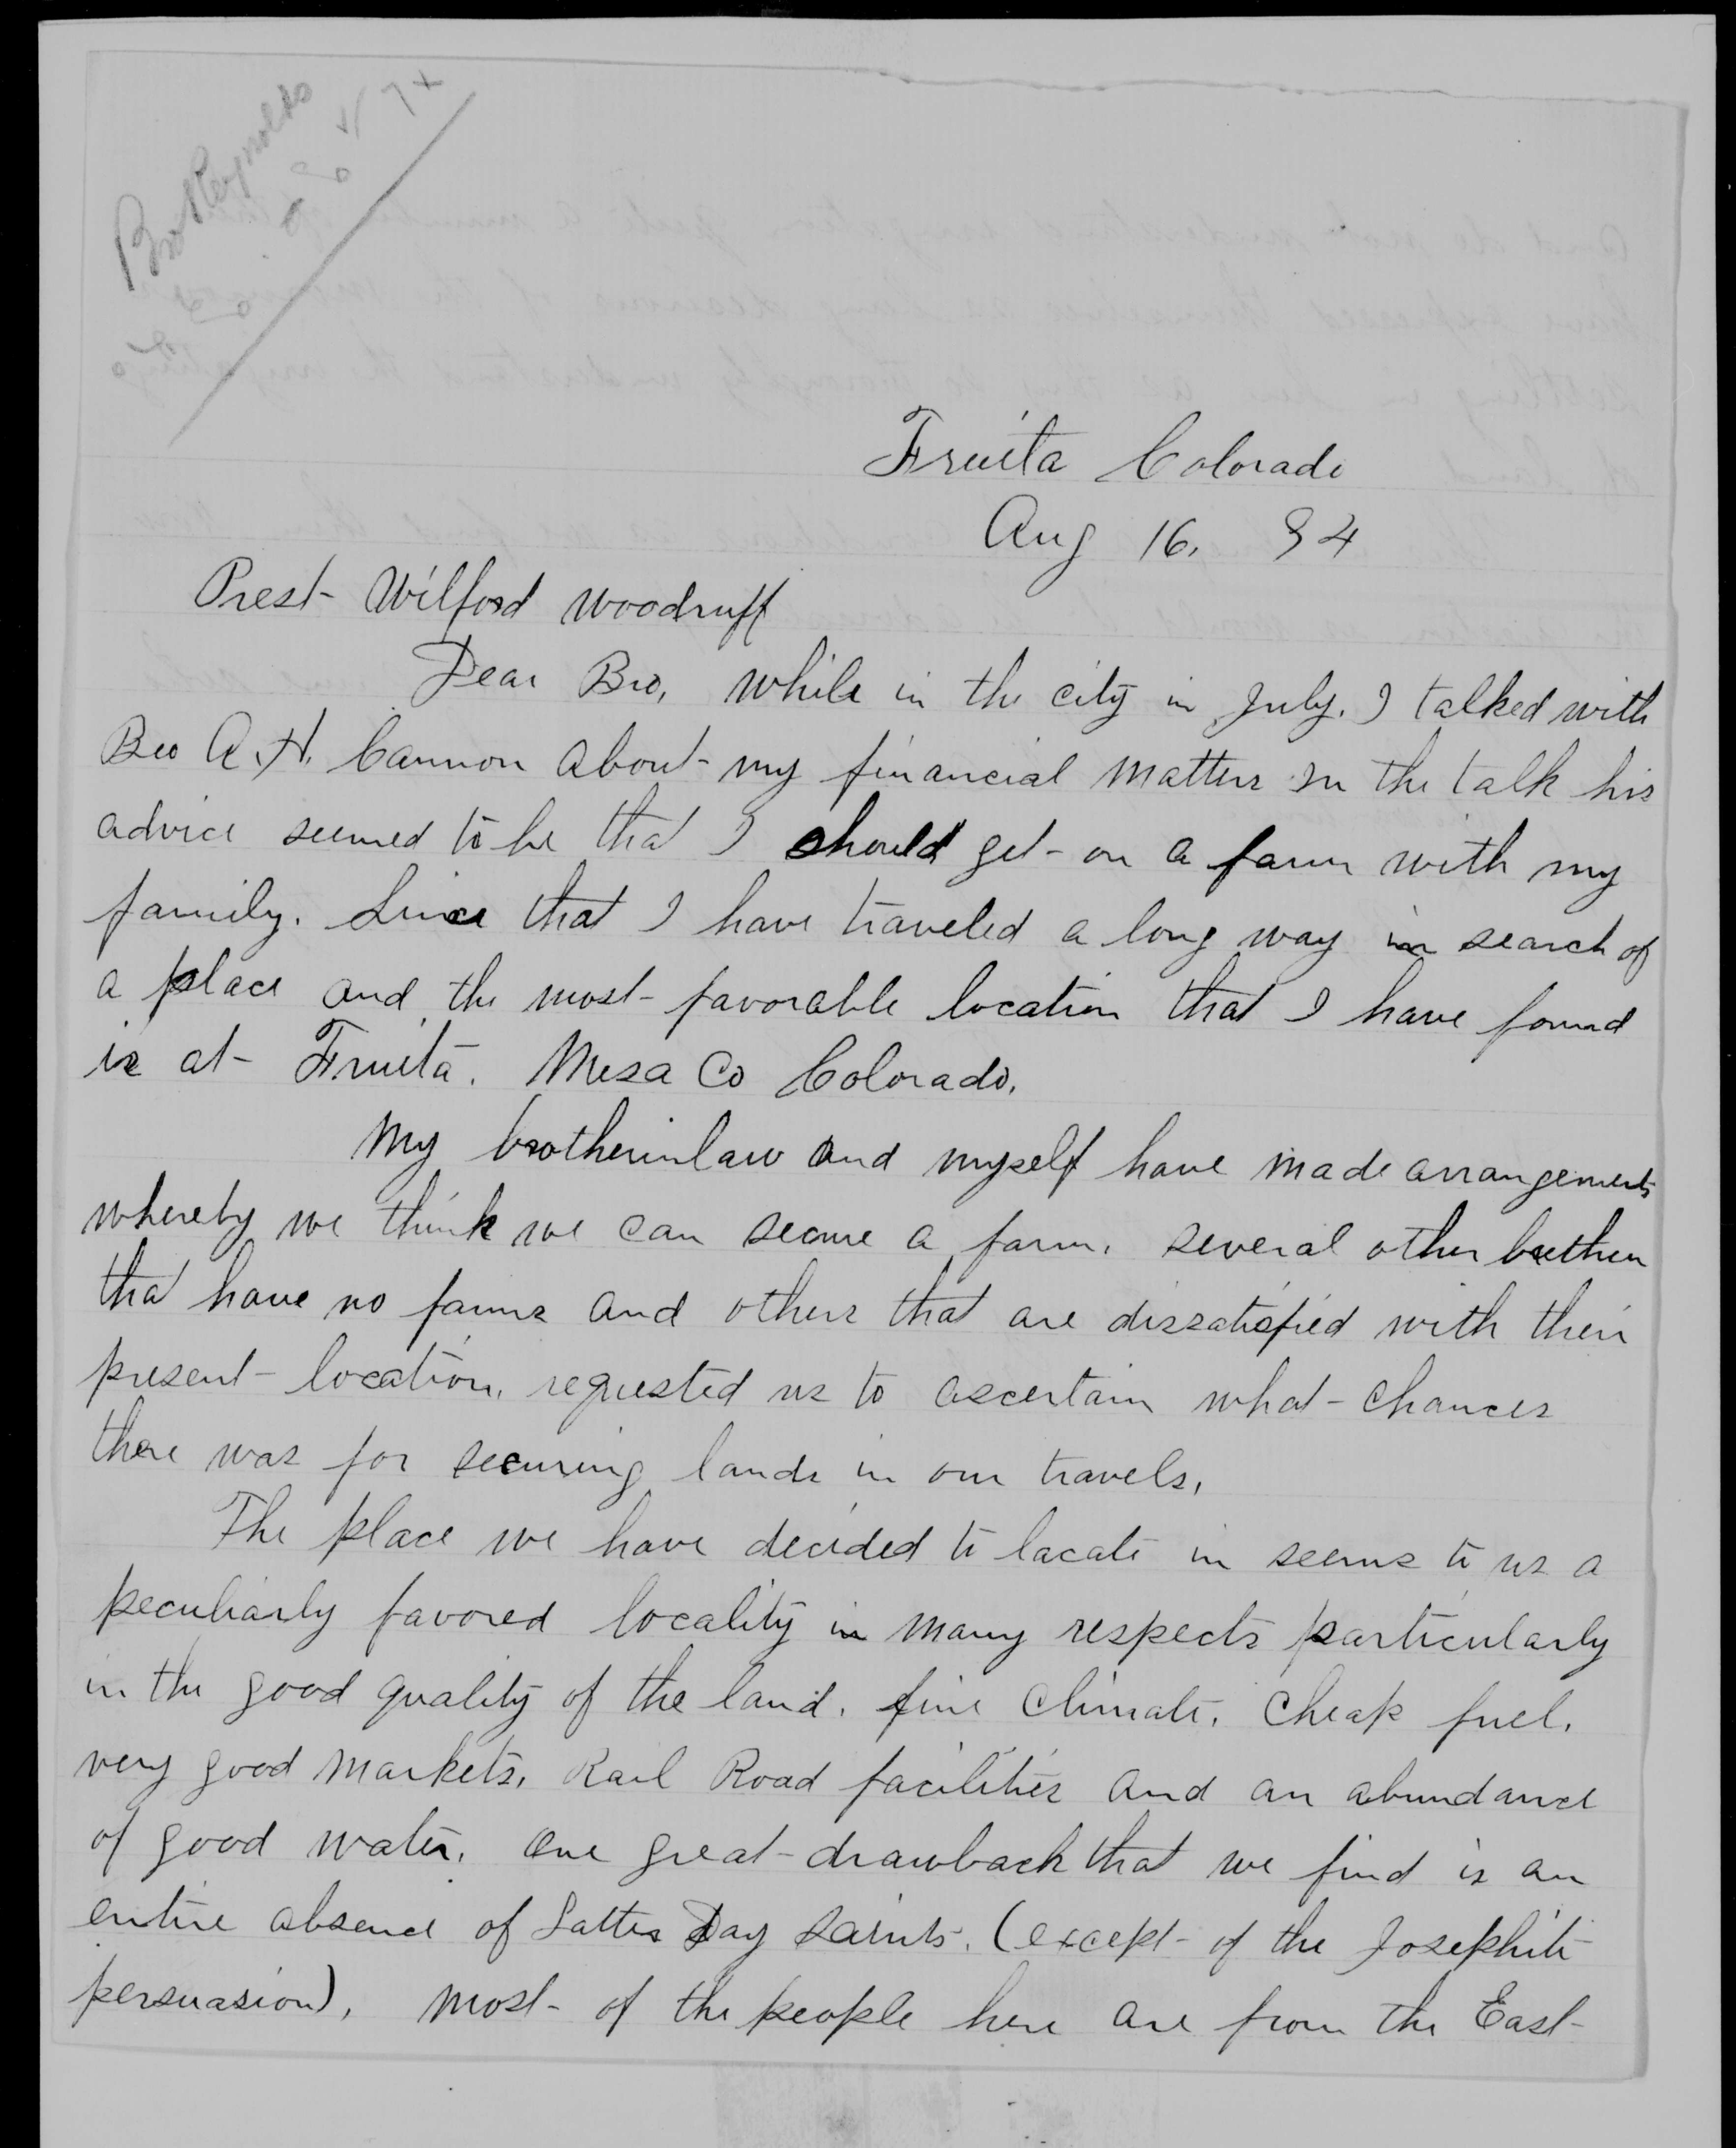 Bro Reynolds
Fruita Colorado
Aug 16, 94
Prest- Wilford Woodruff
Dear Bro, while in the city in July. I talked with
Bro A. H. Cannon about- my financial matters in the talk his
advice seemed to be that I should get- on a farm with my
family. Since that I have traveled a long way in search of
a place and the most- favorable location that I have found
is at- Fruita. Mesa Co Colorado.
My brotherinlaw and myself have made arrangements
whereby we think we can secure a farm. several other brethren
that have no farms and others that are dissatisfied with their
present- location, requested us to ascertain what- chances
there was for securing lands in our travels,
The place we have decided to locate in seems to us a
peculiarly favored locality in many respects particularly
in the good quality of the land, fine climate, cheap fuel,
very good markets, Rail Road facilities and an abundance
of good water, One great- drawback that we find is an
entire absence of Latter Day Saints. (except- of the Josephite
persuasion), most- of the people here are from the East-